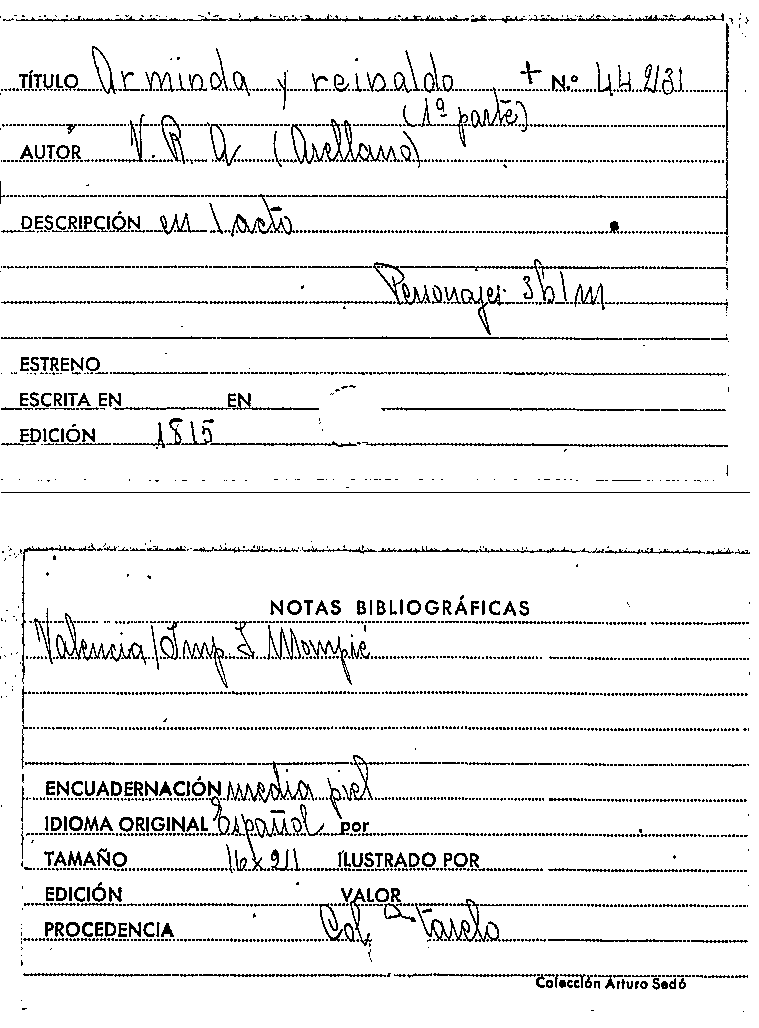 TÍTULO Arminda y reinaldo + N.º 442131
(1ª parte)
AUTOR V. R. A (Arellano)
DESCRIPCIÓN en 1 acto
Personajes 3h 1 m
ESTRENO
ESCRITA EN EN
EDICIÓN 1815
NOTAS BIBLIOGRÁFICAS
Valencia / Imp I Mompié
ENCUADERNACIÓN media piel
IDIOMA ORIGINAL Español por
TAMAÑO ILUSTRADO POR
EDICIÓN VALOR
PROCEDENCIA Col
Colección Arturo Sedó